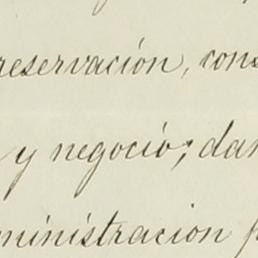 reservación, cons
y negocio; dar
ministracion p